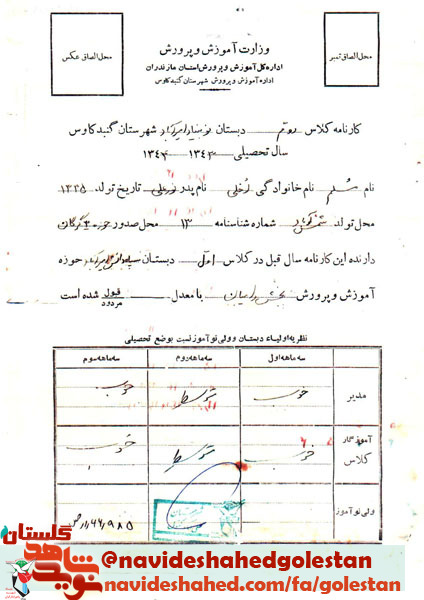 محل الصاق تمبر
محل الصاق عکس
وزارت آموزش و پرورش
اداره کل آموزش و پرورش استان مازندران
اداره آموزش و پرورش شهرستان گنبد کاوس
کارنامه کلاس دوم دبستان نوبنیاد شهرستان گنبد کاوس
سال تحصیلی ۱۳۴۳ ۱۳۴۴
نام مسلم نام خانوادگی نام پدر تاریخ تولد ۱۳۳۵
محل تولد شماره شناسنامه ۱۳ محل صدور حوزه ۳ گرگان
دارنده این کارنامه سال قبل در کلاس اول دبستان حوزه
آموزش و پرورش بخش رامیان با معدل قبول مردود شده است
نظریه اولیاء دبستان و ولی نوآموز نسبت بوضع تحصیلی
سه ماهه اول سه ماهه دوم سه ماهه سوم
مدیر خوب متوسط خوب
آموزگار کلاس خوب متوسط خوب
ولی نوآموز
نوید شاهد گلستان
@navideshahedgolestan
navideshahed.com/fa/golestan